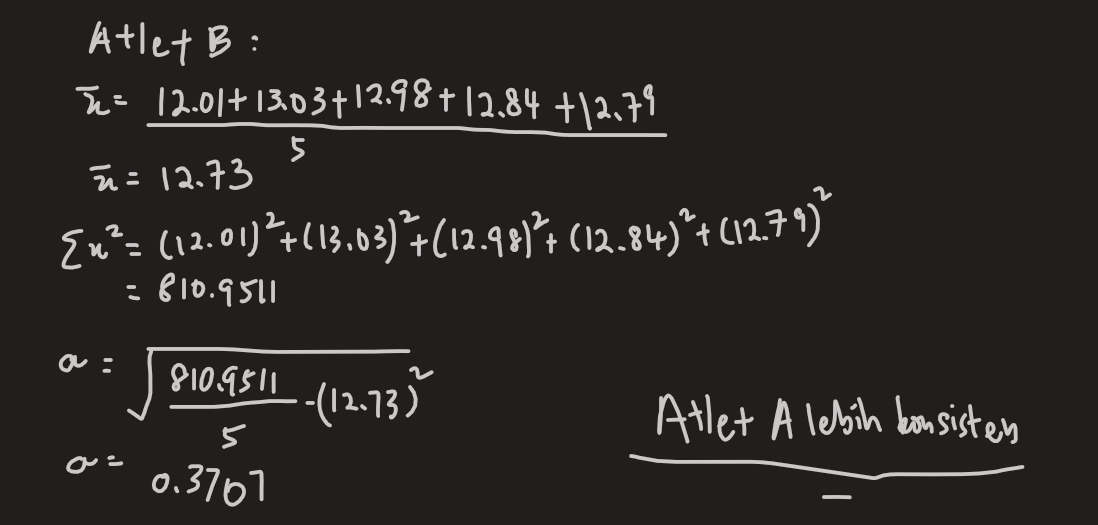 Atlet B :
x̄ = 12.01+13.03+12.98+12.84+12.79
5
x̄ = 12.73
∑x² = (12.01)²+(13.03)²+(12.98)²+(12.84)²+(12.79)²
= 810.9511
σ = √ 810.9511 -(12.73)²
5
σ = 0.3707
Atlet A lebih konsisten